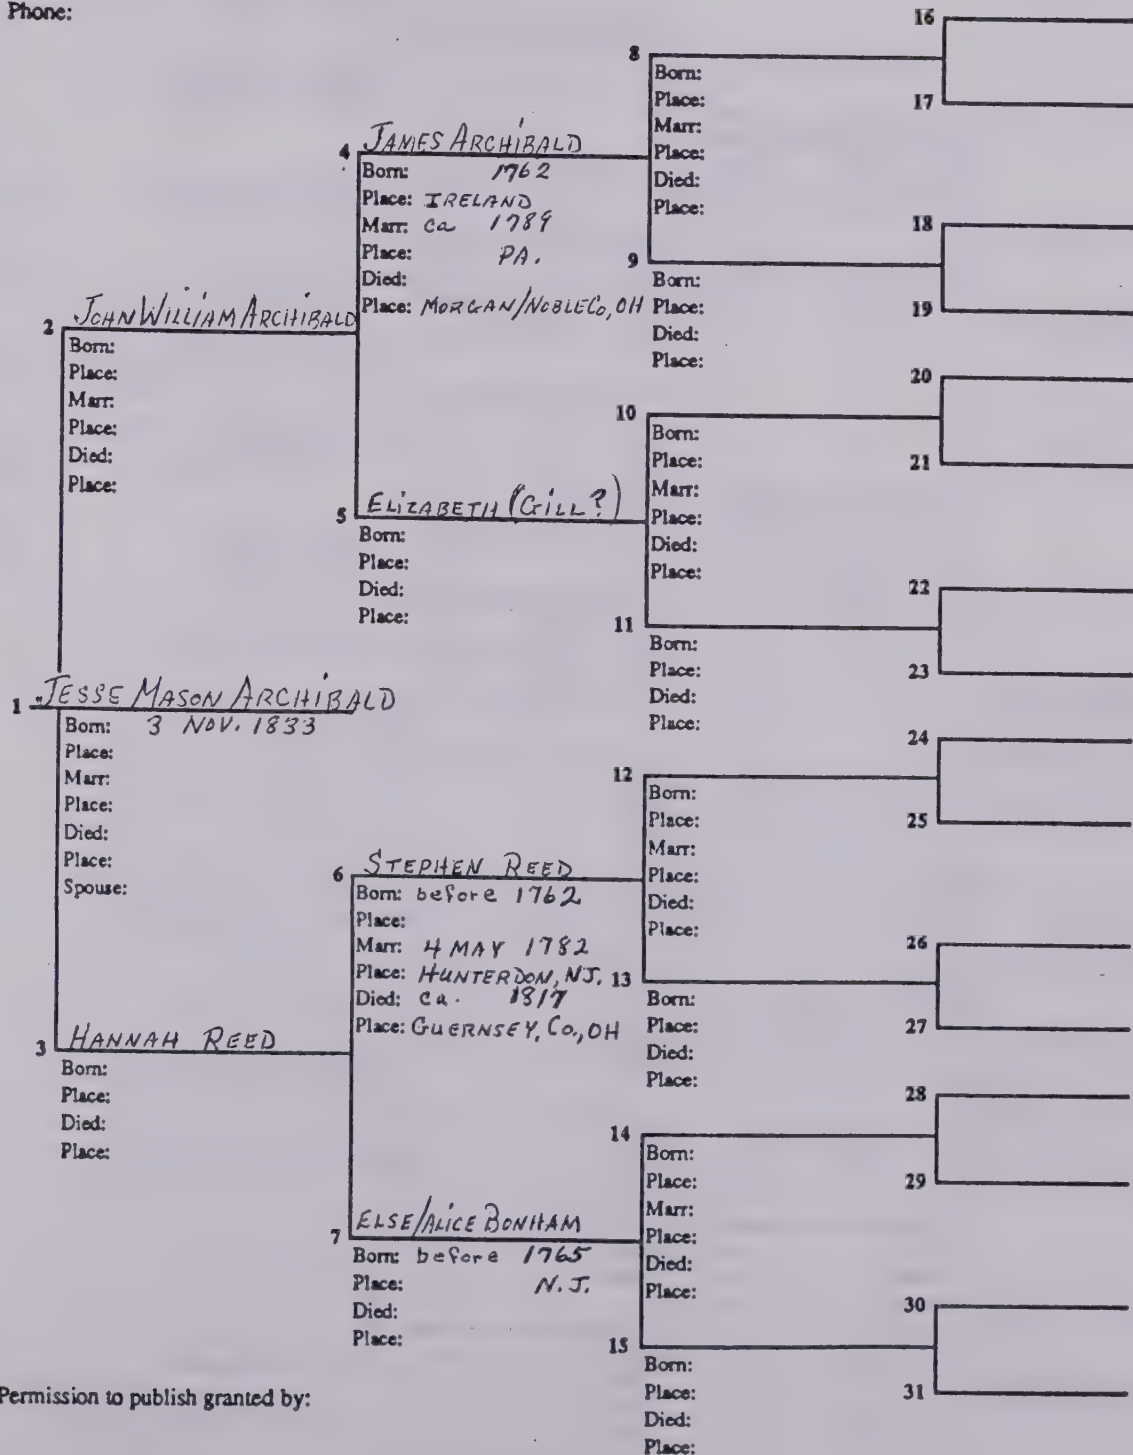 Phone:
1 JESSE MASON ARCHIBALD
Born: 3 NOV. 1833
Place:
Marr:
Place:
Died:
Place:
Spouse:
2 JOHN WILLIAM ARCHIBALD
Born:
Place:
Marr:
Place:
Died:
Place:
3 HANNAH REED
Born:
Place:
Died:
Place:
4 JAMES ARCHIBALD
Born: 1762
Place: IRELAND
Marr: ca 1789
Place: PA.
Died:
Place: MORGAN/NOBLE Co, OH
5 ELIZABETH (GILL?)
Born:
Place:
Died:
Place:
6 STEPHEN REED
Born: before 1762
Place:
Marr: 4 MAY 1782
Place: HUNTERDON, NJ.
Died: ca. 1817
Place: GUERNSEY, Co., OH
7 ELSE/ALICE BONHAM
Born: before 1765
Place: N.J.
Died:
Place:
8
Born:
Place:
Marr:
Place:
Died:
Place:
9
Born:
Place:
Died:
Place:
10
Born:
Place:
Marr:
Place:
Died:
Place:
11
Born:
Place:
Died:
Place:
12
Born:
Place:
Marr:
Place:
Died:
Place:
13
Born:
Place:
Died:
Place:
14
Born:
Place:
Marr:
Place:
Died:
Place:
15
Born:
Place:
Died:
Place:
16
17
18
19
20
21
22
23
24
25
26
27
28
29
30
31
Permission to publish granted by: